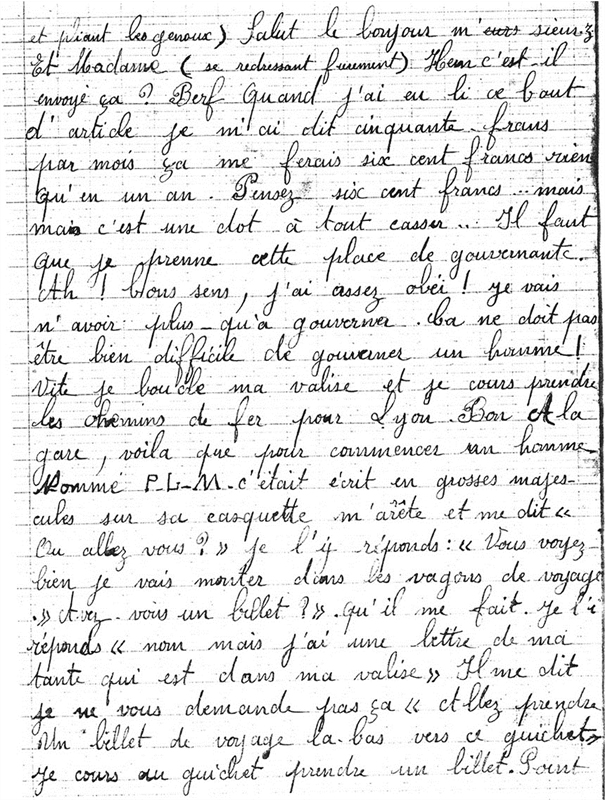 et pliant les genoux) Salut le bonjour m'eurs sieurz
Et Madame (se redressant fierement) Hein c'est-il
envoyé ça ? Berf Quand j'ai eu li ce bout
d'article je m'ai dit cinquante francs
par mois ça me ferais six cent francs rien
qu'en un an. Pensez six cent francs... mais
mais c'est une dot à tout casser... Il faut
que je prenne cette place de gouvernante.
Ah ! bons sens, j'ai assez obéi ! je vais
n'avoir plus-qu'à gouverner. Ca ne doit pas
être bien difficile de gouverner un homme !
Vite je boucle ma valise et je cours prendre
les chemins de fer pour Lyon Bon A la
gare, voila que pour commencer un homme
Nommé P-L-M. c'était écrit en grosses majes-
cules sur sa casquette m'arête et me dit «
Ou allez vous ? » je l'y réponds : « Vous voyez
bien je vais monter dans les vagons de voyage
.» Avez-vous un billet ? ». qu'il me fait. Je l'i
réponds « nom mais j'ai une lettre de ma
tante qui est dans ma valise » Il me dit
je ne vous demande pas ça « Allez prendre
Un billet de voyage la-bas vers ce guichet »
Je cours au guichet prendre un billet. Point